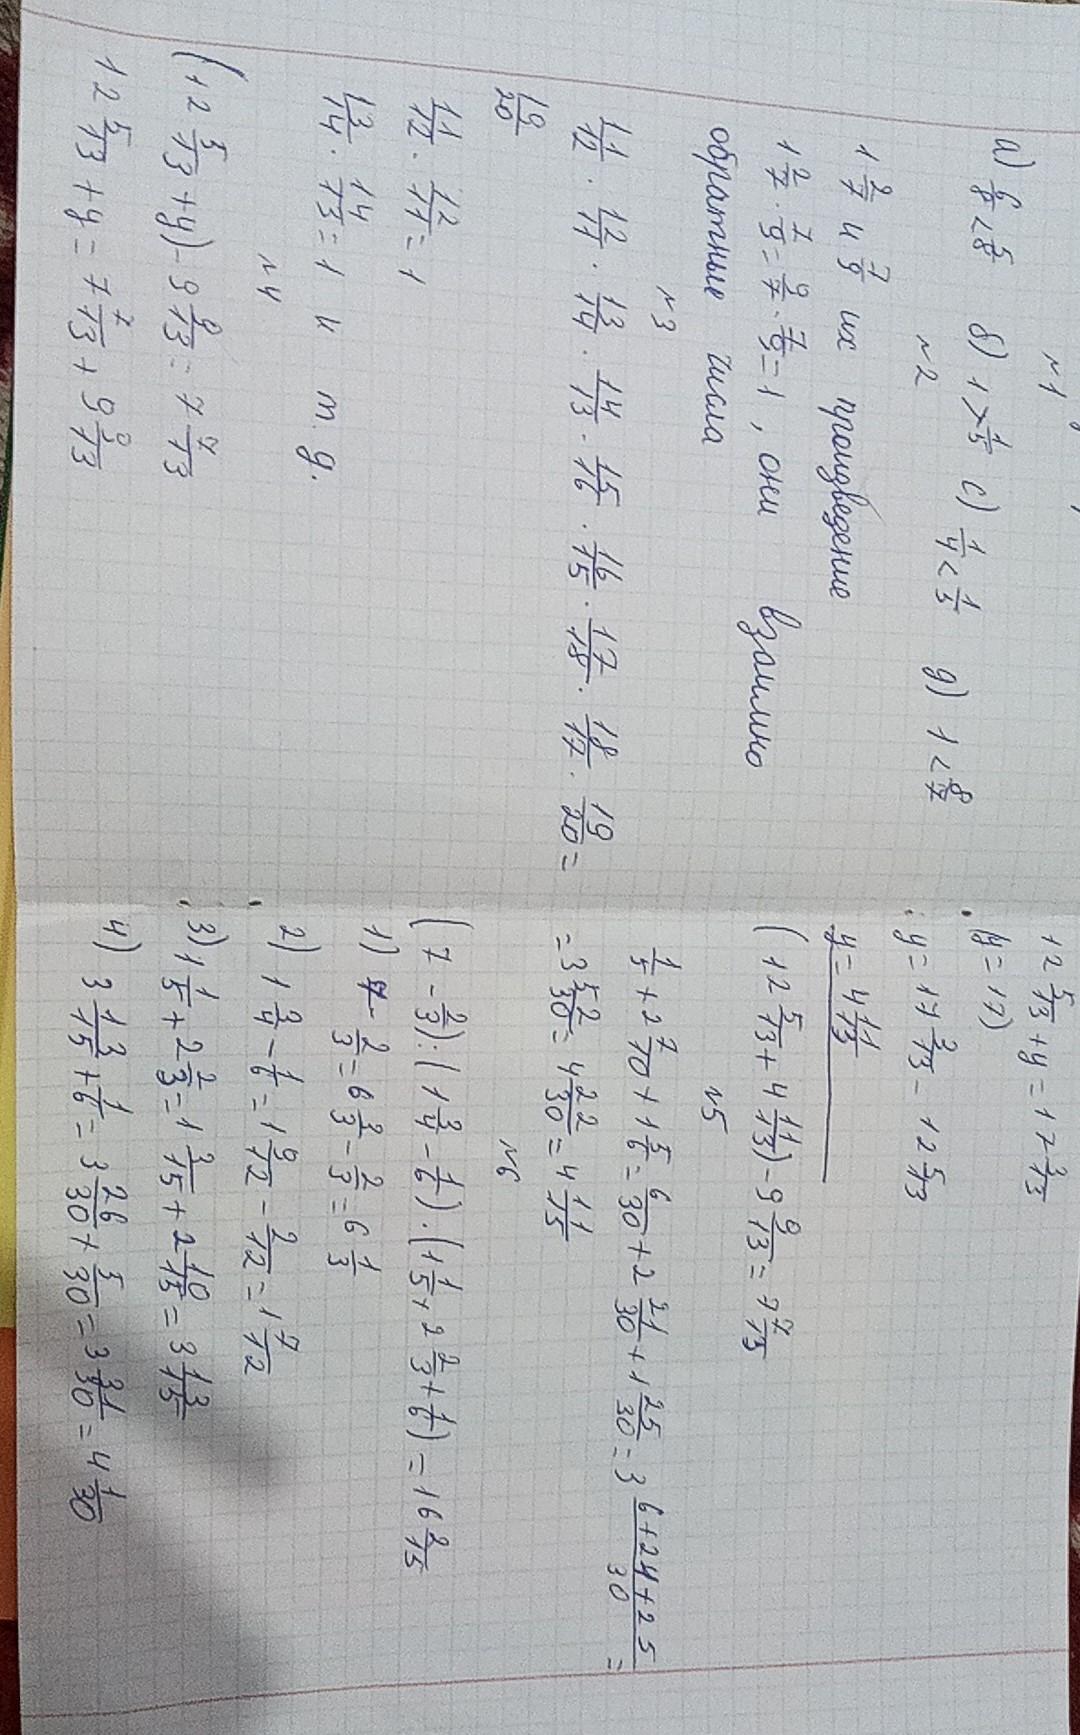 №1
а) 6/8 < 5/8 б) 1 > 1/5 с) 1/4 < 1/3 д) 1 < 8/7
№2
1 2/7 и 7/9 их произведение
1 2/7 · 7/9 = 9/7 · 7/9 = 1, они взаимно
обратные числа
№3
11/12 · 12/11 · 13/14 · 14/13 · 15/16 · 16/15 · 17/18 · 18/17 · 19/20 =
19/20
11/12 · 12/11 = 1
13/14 · 14/13 = 1 и т.д.
№4
(12 5/13 + y) - 9 9/13 = 7 7/13
12 5/13 + y = 7 7/13 + 9 9/13
12 5/13 + y = 17 3/13
(y = 17)
y = 17 3/13 - 12 5/13
y = 4 11/13
(12 5/13 + 4 11/13) - 9 9/13 = 7 7/13
№5
1/5 + 2 7/10 + 1 5/6 = 6/30 + 2 21/30 + 1 25/30 = 3 6+24+25/30 =
= 3 52/30 = 4 22/30 = 4 11/15
№6
(7 - 2/3) : (1 3/4 - 1/6) · (1 1/5 + 2 2/3 + 1/6) = 16 2/15
1) 7 - 2/3 = 6 3/3 - 2/3 = 6 1/3
2) 1 3/4 - 1/6 = 1 9/12 - 2/12 = 1 7/12
3) 1 1/5 + 2 2/3 = 1 3/15 + 2 10/15 = 3 13/15
4) 3 13/15 + 1/6 = 3 26/30 + 5/30 = 3 31/30 = 4 1/30